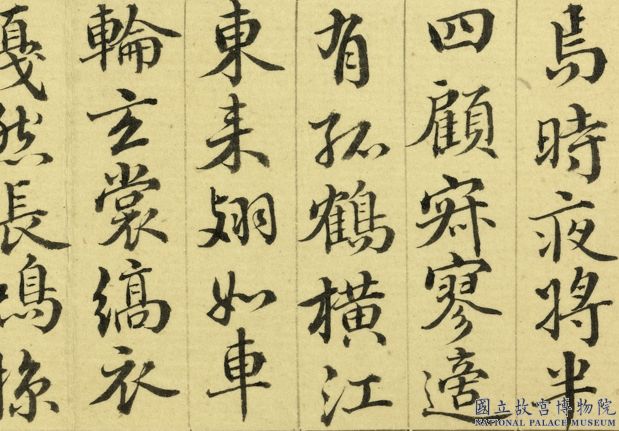 焉時夜將半
四顧寂寥適
有孤鶴橫江
東来翅如車
輪玄裳縞衣
戛然長鳴掠
國立故宮博物院
NATIONAL PALACE MUSEUM